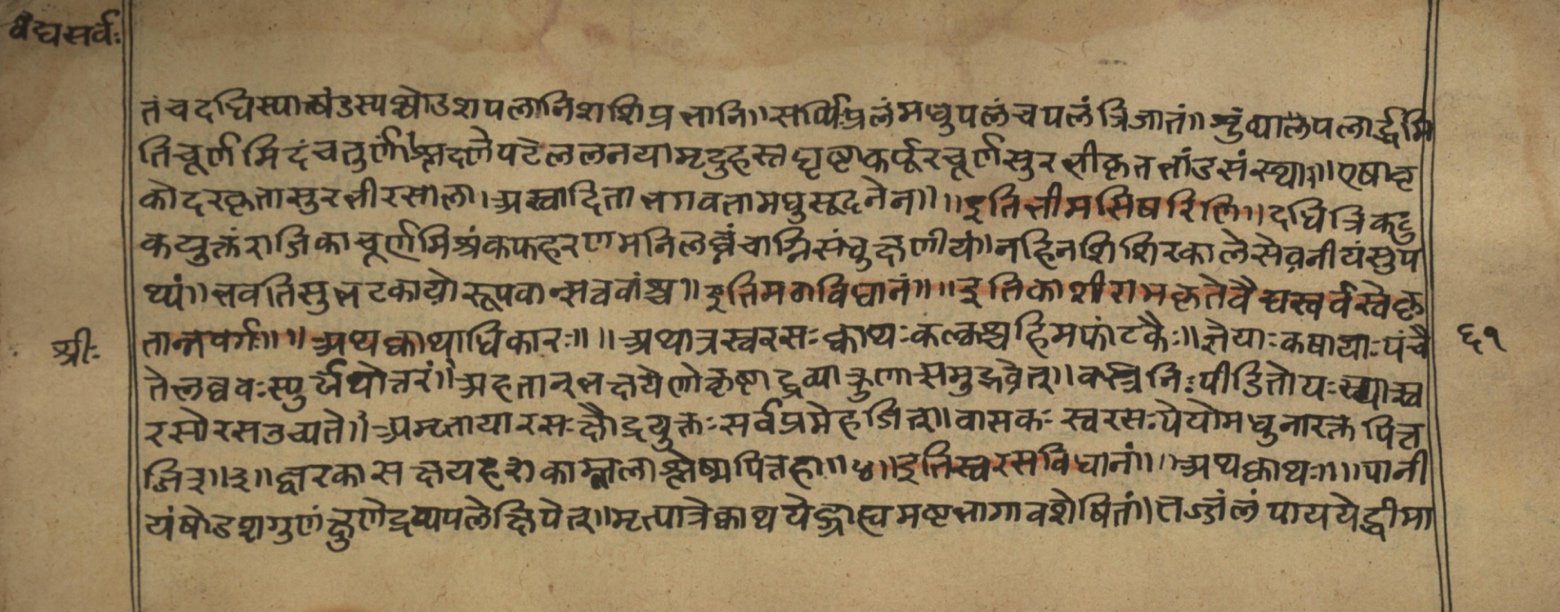 वैद्यसर्वः
तं च दधिस्यात्षंडस्य श्चोडशपलानिशशिप्रभानि॥सर्पिःप्रलंमधुपलं च पलं त्रिजातं॥शुंठ्यालपलार्द्धमि
तिचूर्णमिदं च तुर्णं॥श्लक्ष्णेपटेललनयामृदुहस्तघृष्टाकर्पूरचूर्णसुरभीकृतभांडसंस्था॥एषावृ
कोदरकृतासुरभीरसाला।अस्वादिताभगवतामधुसूदनेन॥॥इतिभीमसिषरिलि॥दधित्रिकटु
कयुक्तंराजिकाचूर्णमिश्रंकफहरणमनिलघ्नंचाग्निसंधुक्षणीयं।नहिनशिशिरकालेसेव़नीयंसुप
थ्यं॥भवतिसुभटकायो रूपवान्सत्ववांश्च॥इतिमठाविधानं॥॥इतिकाशीरामकृतेवैद्यस्वर्वस्वेकृ
तान्नवर्गः॥॥अथक्वाथाधिकारः॥॥अथात्रस्वरसःक्वाथःकल्कश्चहिमफांटकैः॥ज्ञेयाःकषायाःपंचै
श्रीः
६१
तेलघवःस्पुर्यथोत्तरं॥अहतात्तत्क्षणोकृष्टाद्रव्याक्षुणासमुद्भवेत्॥वस्त्रनिःपीडितोयःस्यात्स्व
रसोरसउच्यते॥अमृतायारसःक्षौद्रयुक्तःसर्वप्रमेहजित्॥वासकःस्वरसःपेयोमधुनारक्तपित्त
जित्॥३॥ज्वरकासक्षयहरोकामलाश्लेष्मपित्तहा॥४॥इतिस्वरसविधानं॥॥अथक्वाथः॥॥पानी
यंषोडशगुणंक्षुणेद्रव्यपलेक्षिपेत्॥मृत्पात्रेक्वाथयेद्ग्राह्यमष्टभागावशेषितं॥तज्जलंपाययेद्धीमा